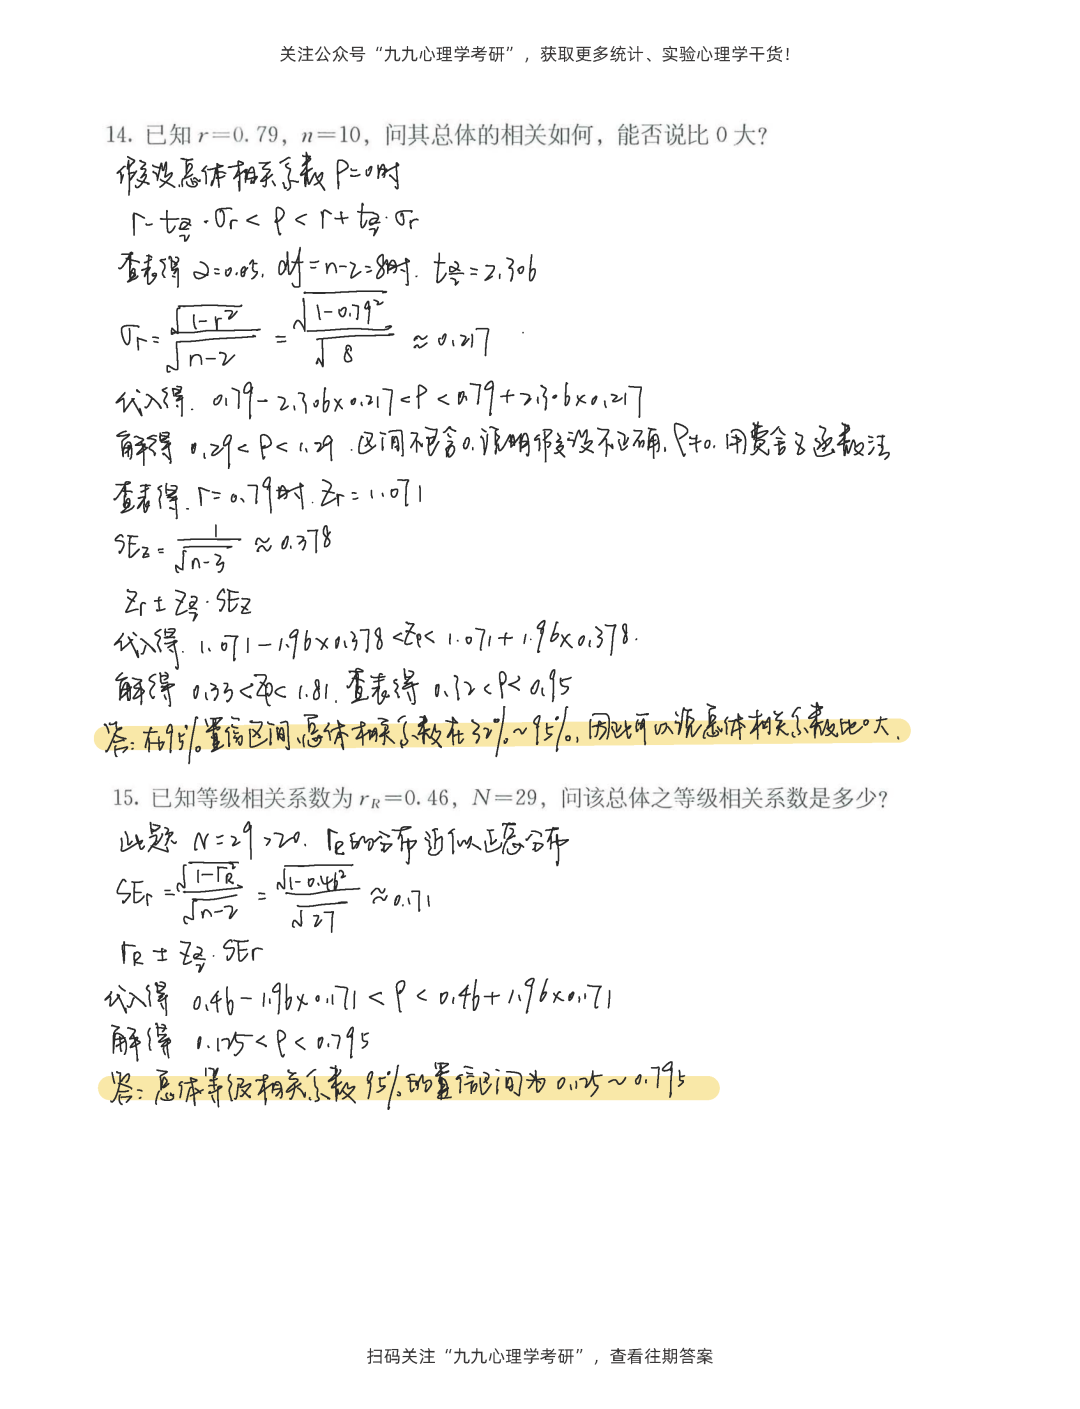 关注公众号“九九心理学考研”，获取更多统计、实验心理学干货！
14. 已知 r＝0.79，n＝10，问其总体的相关如何，能否说比 0 大？
假设总体相关系数 ρ=0时
r- tα/2 · σr < ρ < r+ tα/2 · σr
查表得 α=0.05. df=n-2=8时. tα/2=2.306
σr= √(1-r²)/√(n-2) = √(1-0.79²)/√8 ≈ 0.217
代入得. 0.79-2.306×0.217<ρ<0.79+2.306×0.217
解得 0.29<ρ<1.29 .区间不包含0.说明假设不正确. ρ≠0. 用费舍Z函数法
查表得. r=0.79时. Zr=1.071
SEz= 1/√(n-3) ≈ 0.378
Zr ± Zα/2 · SEZ
代入得. 1.071-1.96×0.378<Zρ<1.071+1.96×0.378.
解得 0.33<Zρ<1.81. 查表得 0.32<ρ<0.95
答: 在95%置信区间,总体相关系数在32%~95%, 因此可以说总体相关系数比0大.
15. 已知等级相关系数为 rR＝0.46，N＝29，问该总体之等级相关系数是多少？
此题 N=29>20. rR的分布近似正态分布
SEr = √(1-rR²)/√(n-2) = √(1-0.46²)/√27 ≈0.171
rR ± Zα/2 · SEr
代入得 0.46-1.96×0.171<ρ<0.46+1.96×0.171
解得 0.125<ρ<0.795
答: 总体等级相关系数95%的置信区间为 0.125~0.795
扫码关注“九九心理学考研”，查看往期答案